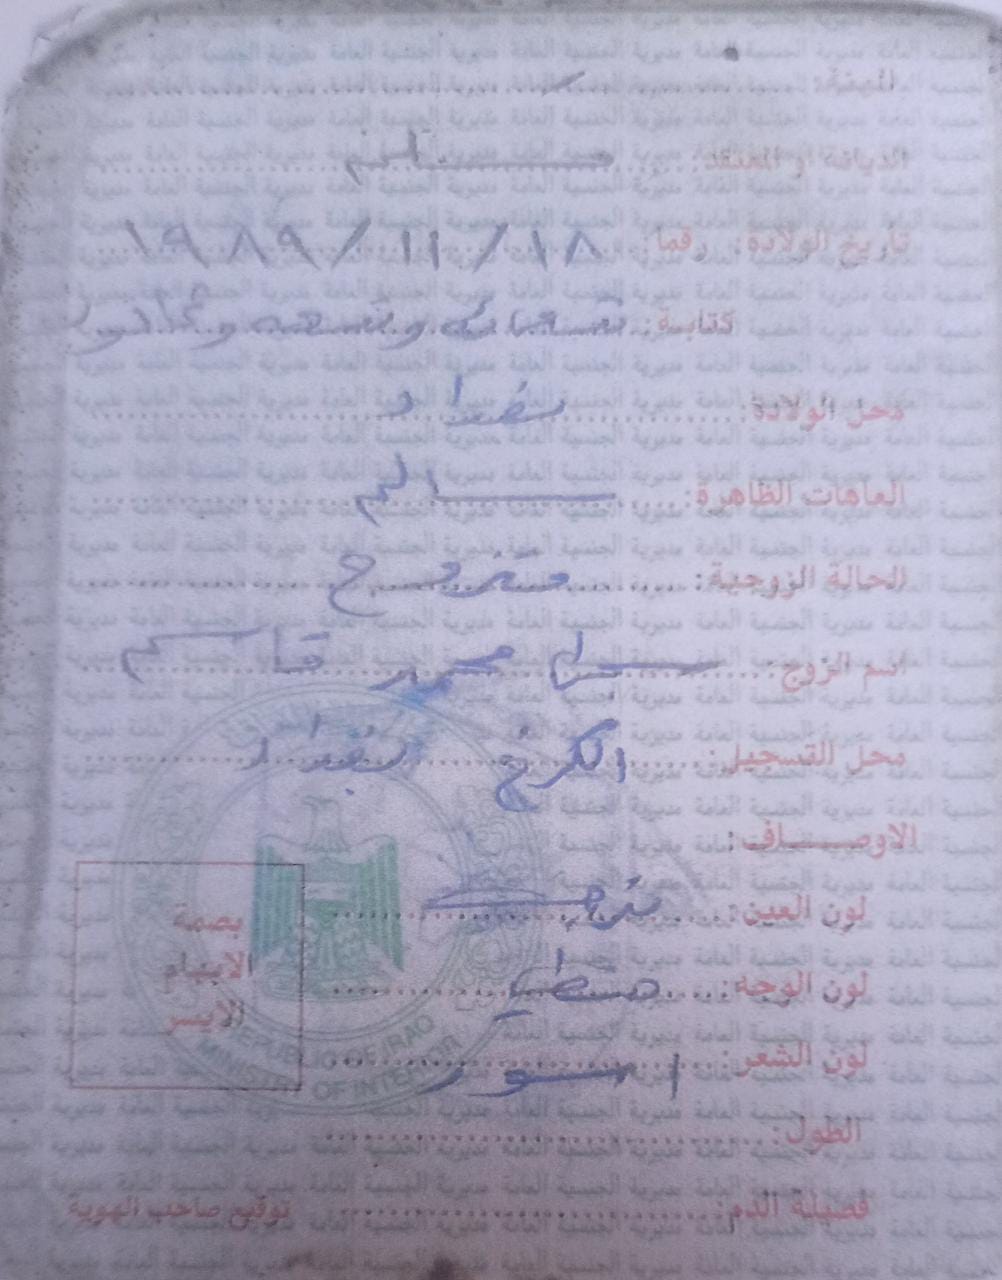 المهنة:
الديانة او المعتقد: مسلم
تاريخ الولادة: رقما: ١٨ / ١١ / ١٩٨٩
كتابة: تسعمائة وتسعة وثمانون
محل الولادة: بغداد
العاهات الظاهرة: سالم
الحالة الزوجية: متزوج
اسم الزوج: محمد قاسم
محل التسجيل: الكرخ بغداد
الاوصاف:
لون العين:
لون الوجه: حنطي
لون الشعر: اسود
الطول:
فصيلة الدم:
بصمة
الابهام
الايسر
توقيع صاحب الهوية
REPUBLIC OF IRAQ
MINISTRY OF INTERIOR